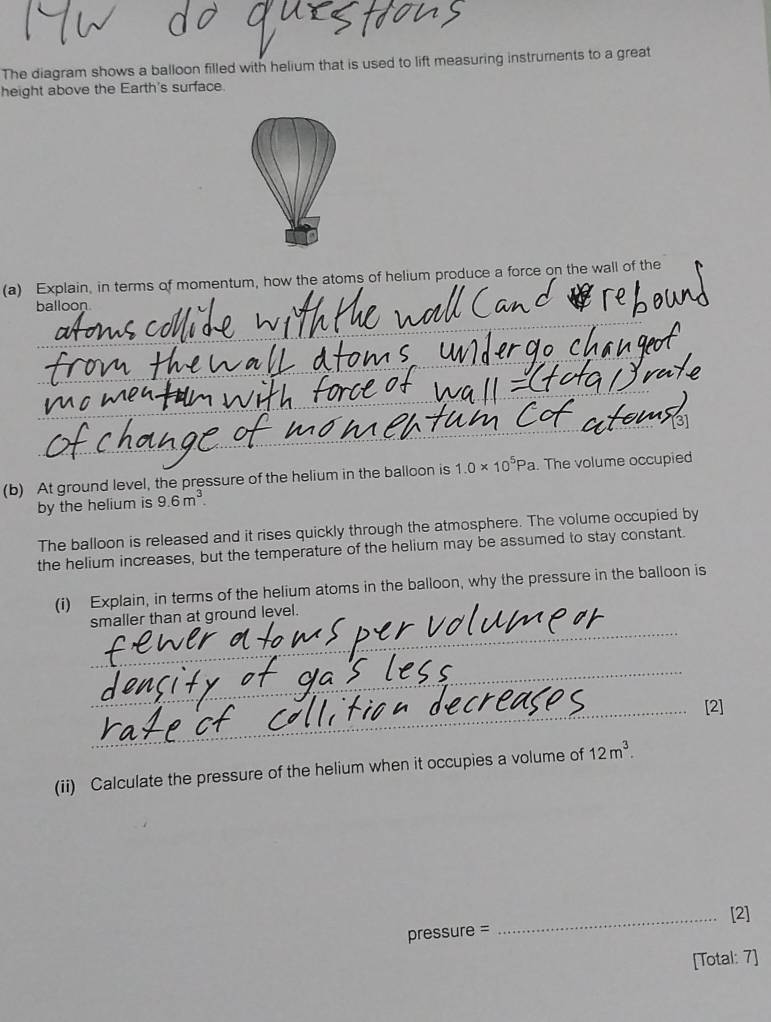 HW do questions
The diagram shows a balloon filled with helium that is used to lift measuring instruments to a great
height above the Earth's surface.
(a) Explain, in terms of momentum, how the atoms of helium produce a force on the wall of the
balloon.
atoms collide with the wall (and rebound
from the wall atoms undergo change of
momentum with force of wall = (total) rate
of change of momentum (of atoms)
[3]
(b) At ground level, the pressure of the helium in the balloon is 1.0 × 10⁵Pa. The volume occupied
by the helium is 9.6 m³.
The balloon is released and it rises quickly through the atmosphere. The volume occupied by
the helium increases, but the temperature of the helium may be assumed to stay constant.
(i) Explain, in terms of the helium atoms in the balloon, why the pressure in the balloon is
smaller than at ground level.
fewer atoms per volume or
density of gas less
rate of collition decreases
[2]
(ii) Calculate the pressure of the helium when it occupies a volume of 12 m³.
pressure = [2]
[Total: 7]